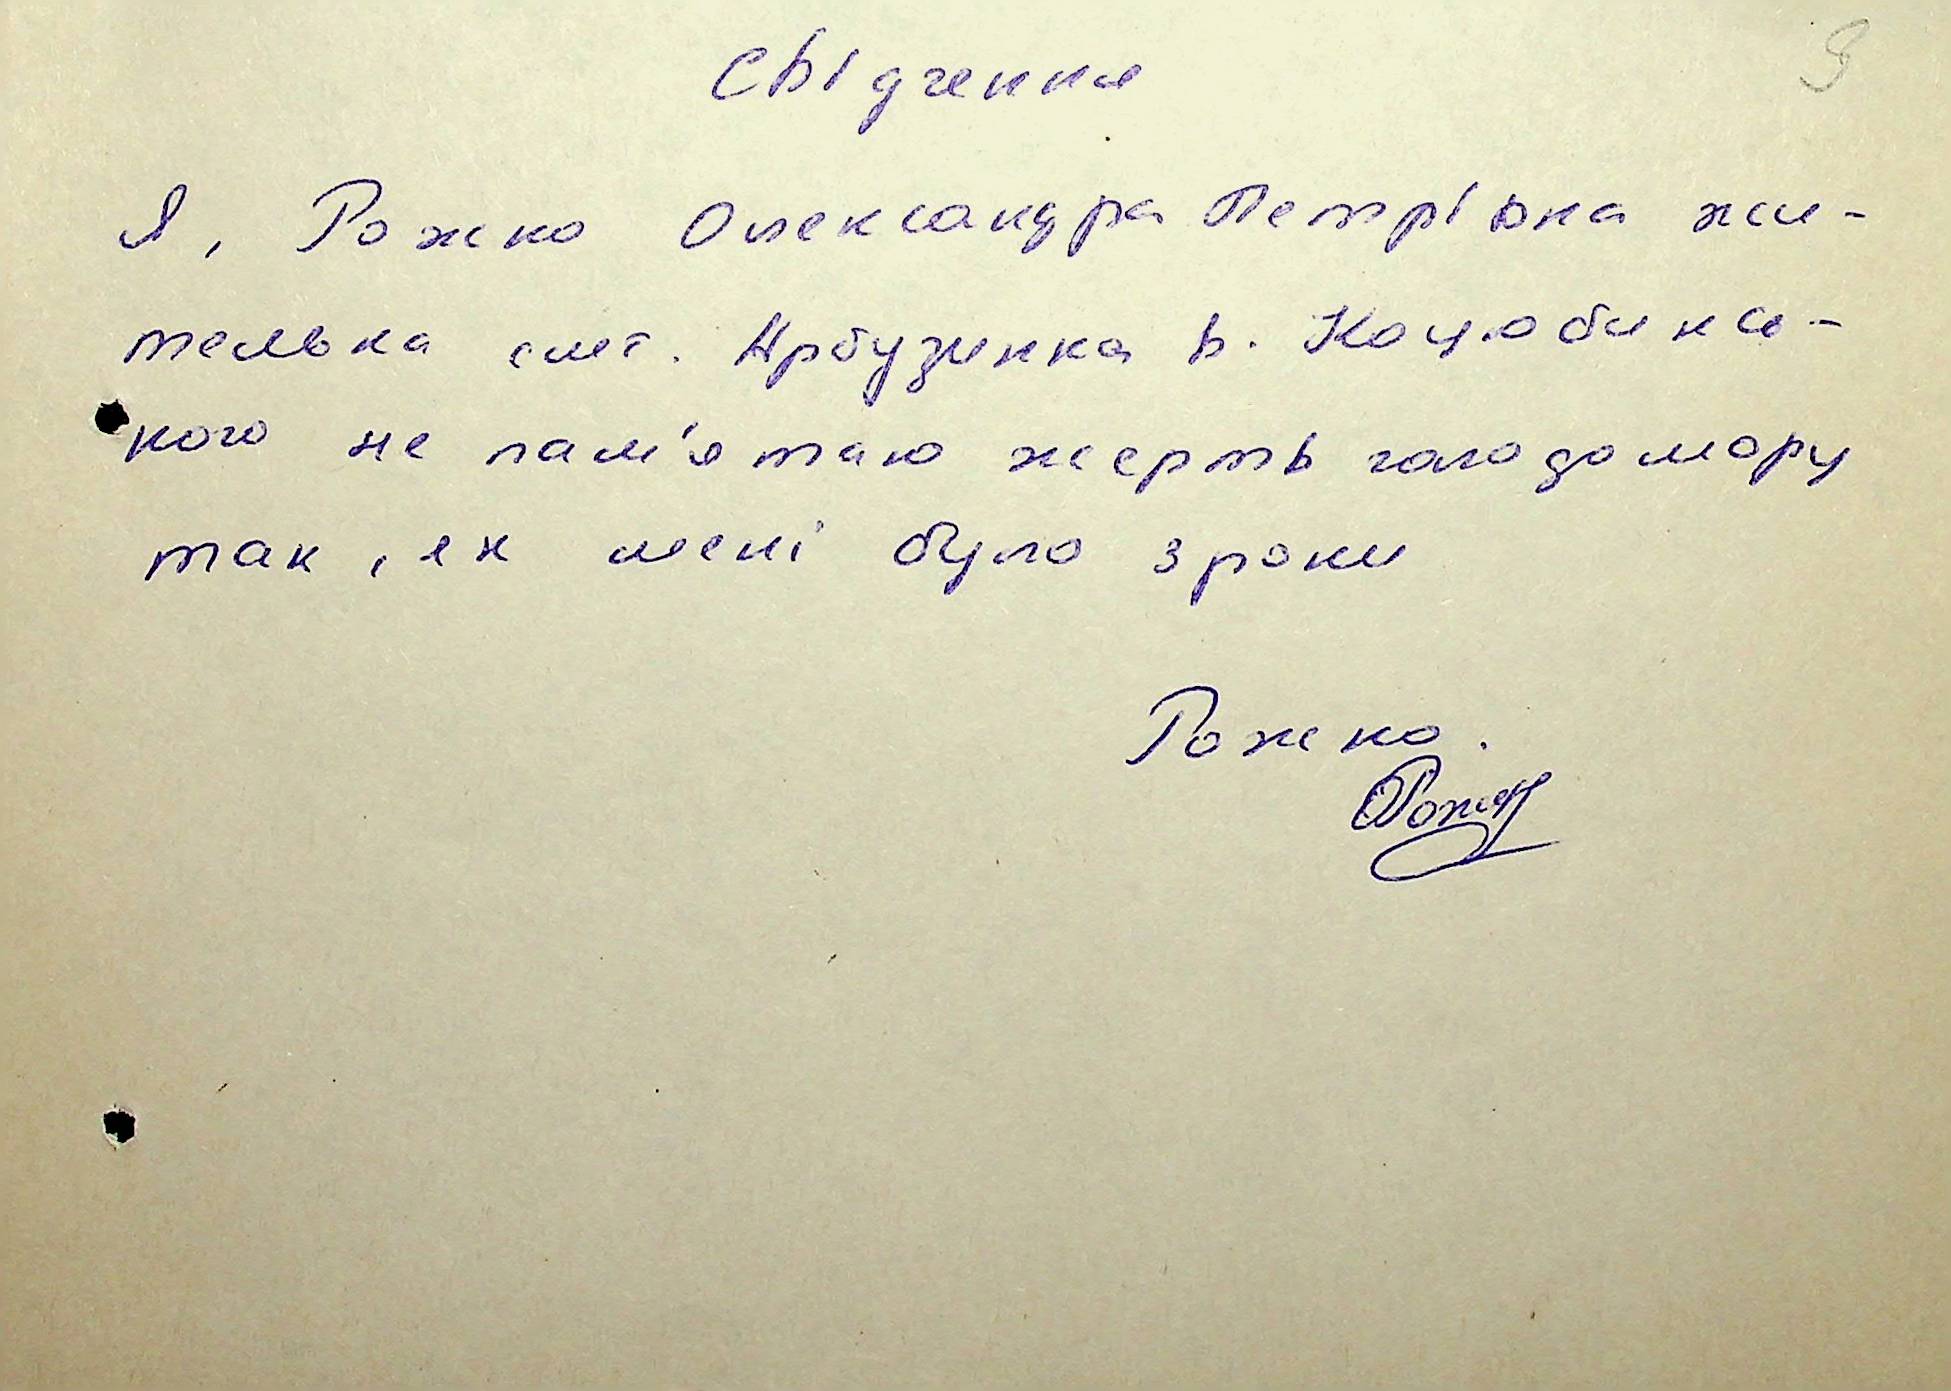 9
Свідчення
Я, Рожко Олександра Петрівна жи-
телька смт. Арбузинка в. Коцюбинсь-
кого не пам'ятаю жертв голодомору
так, як мені було 3 роки
Рожко.
Рожко